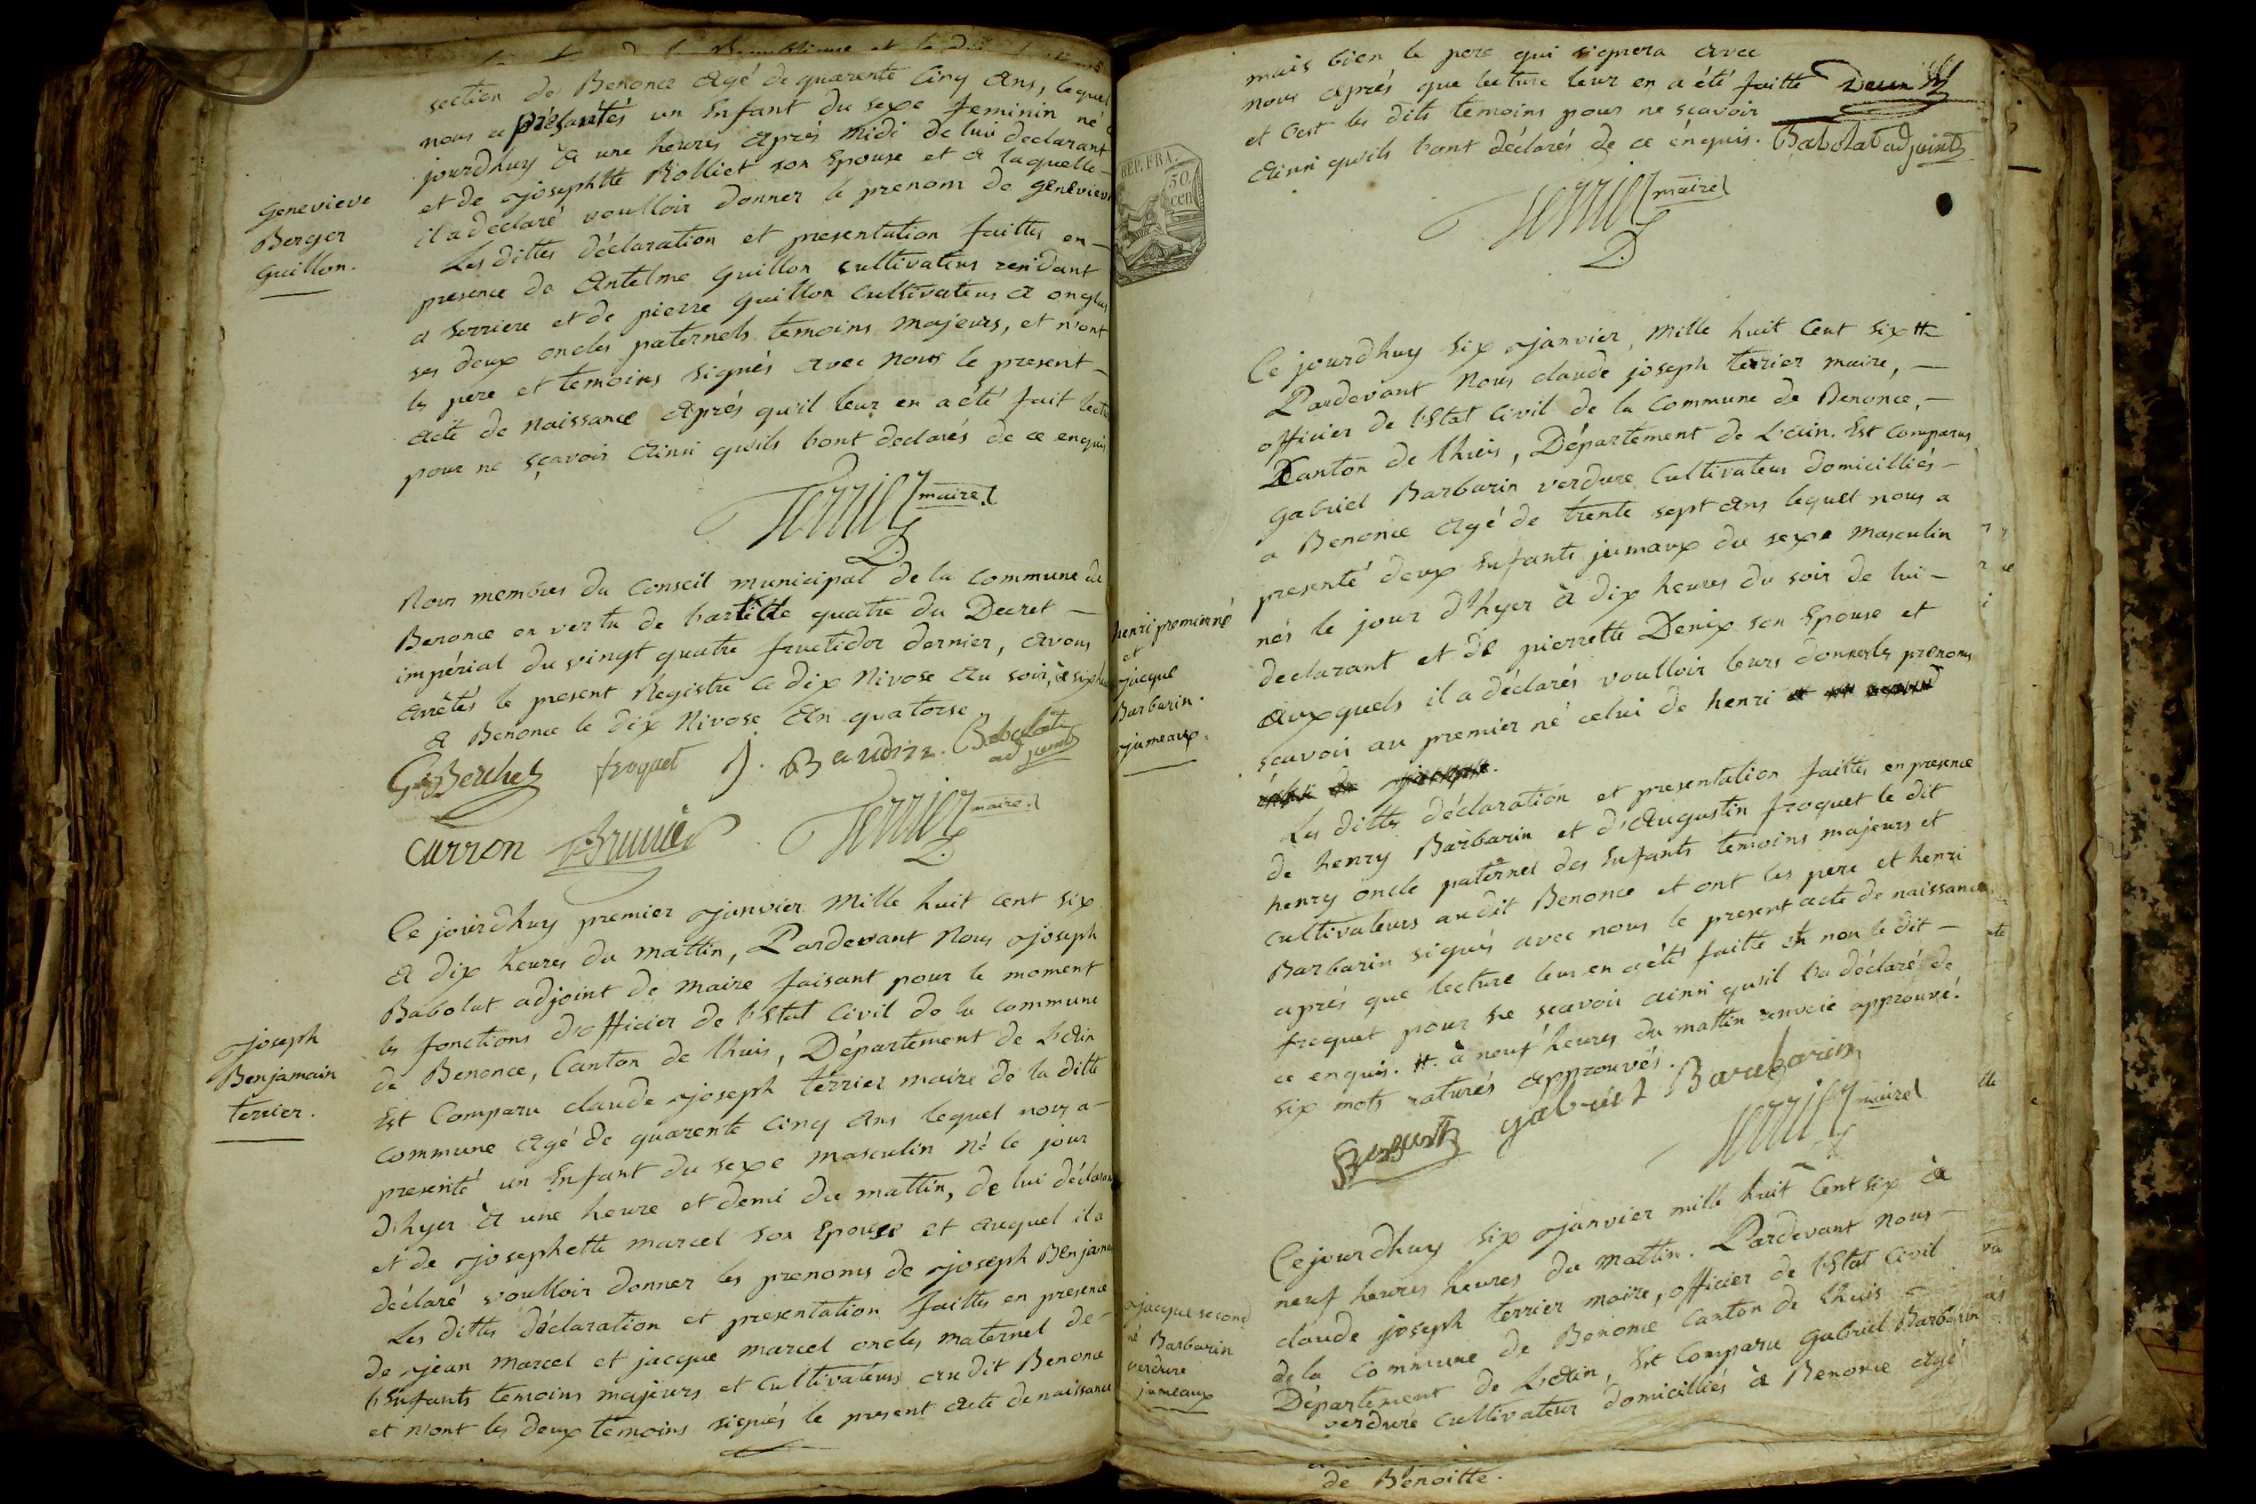 section de Benonce agé de quarente cinq ans, lequel
nous a présantés un Enfant du sexe feminin né
jourdhuy a une heures après midi de lui declarant
et de josephtte Rolliet son Epouse et a laquelle
il a déclaré voulloir donner le prenom de genevieve
Les dittes déclaration et presentation faittes en
presence de Antelme guillon cultivateur residant
a serriere et de pierre guillon cultivateur a onglas
ses deux oncles paternels temoins majeurs, et n'ont
les pere et temoins signés avec nous le present
acte de naissance aprés qu'il leur en a été fait lectu
pour ne sçavoir ainsi qu'ils l'ont declarés de ce enquis
genevieve
Berger
guillon.
Terrier maire
Nous membres du conseil municipal de la commune de
Benonce en vertu de l'article quatre du Decret
impérial du vingt quatre fructidor dernier, avons
arrêtés le present Registre ce dix Nivose au soir, a six
a Benonce le dix Nivose an quatorse
Berthet froquet J. Baudin Babolat adjoint
Curron Brunier Terrier maire
Ce jourdhuy premier janvier mille huit cent six
a dix heures du mattin, Pardevant Nous joseph
Babolat adjoint de maire faisant pour le moment
les fonctions d'officier de l'Etat civil de la commune
de Benonce, Canton de lhuis, Département de L'ain
Est Comparu claude joseph terrier maire de la ditte
commune agé de quarente cinq ans lequel nous a
presenté un Enfant du sexe masculin né le jour
d'hyer a une heure et demi du mattin, de lui déclaran
et de josephette marcel son Epouse et auquel il a
déclaré voulloir donner les prenoms de joseph Benjam
Les dittes déclaration et presentation faittes en presence
de jean marcel et jacque marcel oncles maternel de
l'Enfants temoins majeurs et cultivateurs au dit Benonce
et n'ont les deux temoins signés le present acte de naissance
joseph
Benjamain
terrier.
mais bien le pere qui signera avec
nous aprés que lecture leur en a été faitte
et c'est les dits temoins pour ne scavoir
ainsi qu'ils l'ont déclarés de ce enquis. Babolat adjoint
REP. FRA.
50
cen
Terrier maire
Ce jourdhuy six janvier, mille huit cent six #
Pardevant Nous claude joseph terrier maire,
officier de l'Etat civil de la commune de Benonce,
Canton de lhuis, Département de L'ain. Est Comparus
gabriel Barbarin verdure cultivateur domicilliés
a Benonce agé de trente sept ans lequel nous a
presenté deux Enfants jumaux du sexe masculin
nés le jour d'hyer à dix heures du soir de lui
declarant et de pierrette Denix son Epouse et
auxquels il a déclarés voulloir leurs donner les prenoms
scavoir au premier né celui de henri
henri premier né
et
jacque
Barbarin.
jumeaux.
Les dittes déclaration et presentation faittes en presence
de henry Barbarin et d'augustin froquet le dit
henry oncle paternel des Enfants temoins majeurs et
cultivateurs au dit Benonce et ont les pere et henri
Barbarin signés avec nous le present acte de naissance
aprés que lecture leur en a été faitte et non le dit
froquet pour ne scavoir ainsi qu'il l'a déclaré de
ce enquis. #. à neuf heures du mattin renvoie approuvé.
six mots raturés approuvés.
gabriel Barbarin
Terrier maire
Ce jourdhuy six janvier mille huit cent six à
neuf heures heures du mattin. Pardevant Nous
claude joseph terrier maire, officier de l'Etat civil
de la commune de Benonce Canton de lhuis
Département de L'ain, Est Comparu gabriel Barbarin
verdure cultivateur domicilliés à Benonce agé
jacque second
né Barbarin
verdure
jumeaux
de Benoitte.